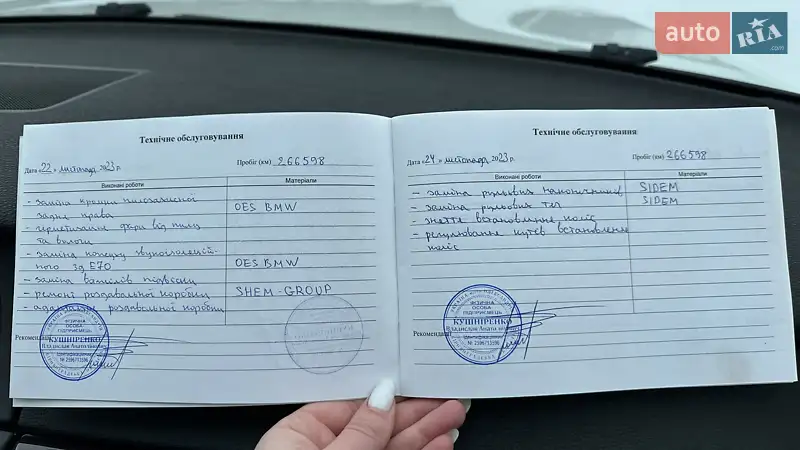 auto RIA .com
Технічне обслуговування
Дата «22» листопада 2023 р. Пробіг (км) 266598
Виконані роботи Матеріали
- заміна кришки пилозахисної OES BMW
задня права
- герметизація фари від пилу
та вологи
- заміна кожуху звукоізоляцій- OES BMW
ного зд E70
- заміна важілів підвіски
- ремонт роздавальної коробки SHEM-GROUP
- адаптація роздавальної коробки
Рекомендації
ФІЗИЧНА
ОСОБА
ПІДПРИЄМЕЦЬ
КУШНІРЕНКО
Владислав Анатолійович
Ідентифікаційний
Технічне обслуговування
Дата «24» листопада 2023 р. Пробіг (км) 266598
Виконані роботи Матеріали
- заміна рульових наконечників SIDEM
- заміна рульових тяг SIDEM
- зняття встановлення коліс
- регулювання кутів встановлення
коліс
Рекомендації
ФІЗИЧНА
ОСОБА
ПІДПРИЄМЕЦЬ
КУШНІРЕНКО
Владислав Анатолійович
Ідентифікаційний